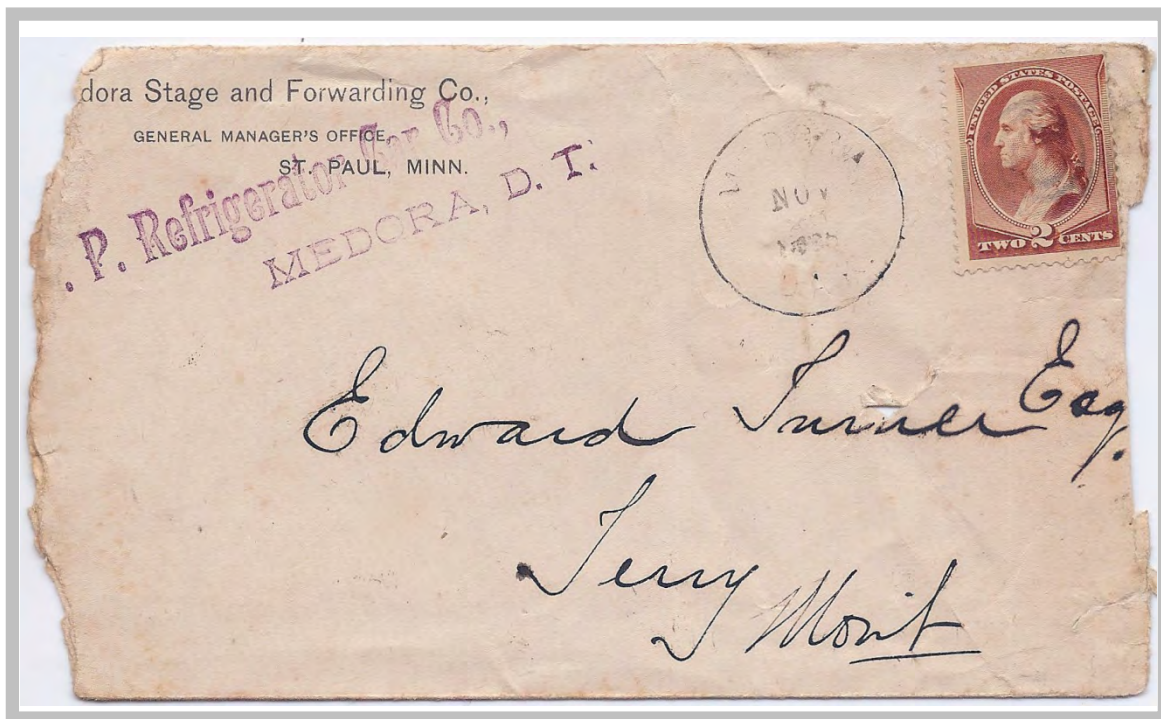 dora Stage and Forwarding Co.,
GENERAL MANAGER'S OFFICE,
ST. PAUL, MINN.
. P. Refrigerator Car Co.,
MEDORA, D. T.
NOV
UNITED STATES POSTAGE
TWO 2 CENTS
Edward Turner Esq.
Terry
Mont